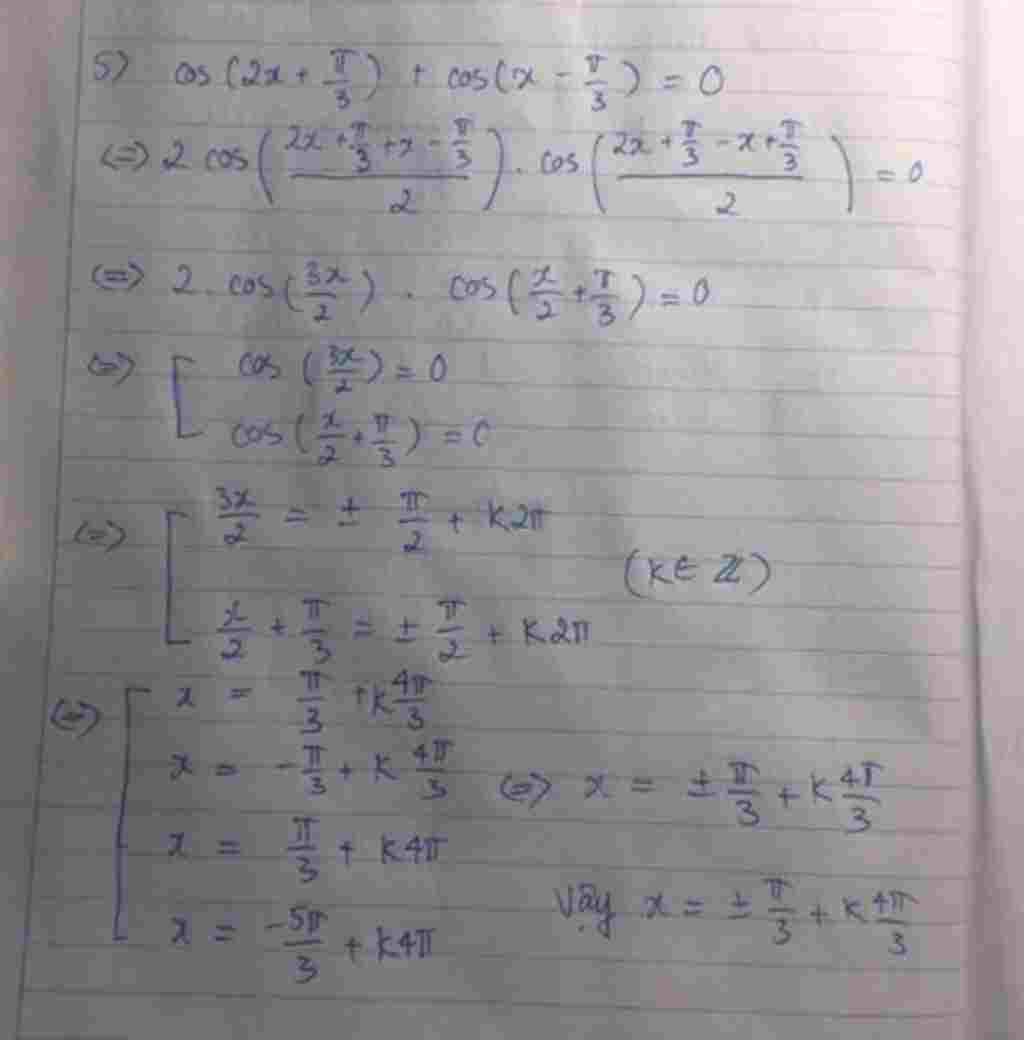 5) cos(2x + π/3) + cos(x - π/3) = 0
(=) 2 cos((2x + π/3 + x - π/3)/2) . cos((2x + π/3 - x + π/3)/2) = 0
(=) 2 . cos(3x/2) . cos(x/2 + π/3) = 0
(=) [ cos(3x/2) = 0
cos(x/2 + π/3) = 0
(=) [ 3x/2 = ± π/2 + k2π
(k ∈ ℤ)
x/2 + π/3 = ± π/2 + k2π
(=) [ x = π/3 + k4π/3
x = -π/3 + k 4π/3 (=) x = ± π/3 + k4π/3
x = π/3 + k4π
Vậy x = ± π/3 + k4π/3
x = -5π/3 + k4π